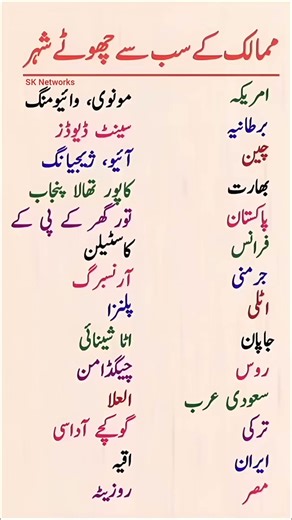 ممالک کے سب سے چھوٹے شہر
SK Networks
امریکہ مونوی، وائیومنگ
برطانیہ سینٹ ڈیوڈز
چین آئیو، ژیجیانگ
بھارت کاپور تھالا پنجاب
پاکستان تور گھر کے پی کے
فرانس کاسٹیلن
جرمنی آرنسبرگ
اٹلی پلنزا
جاپان اٹا شینائی
روس چیگڈامن
سعودی عرب العلا
ترکی گوکچے آداسی
ایران اقیہ
مصر روزیٹہ